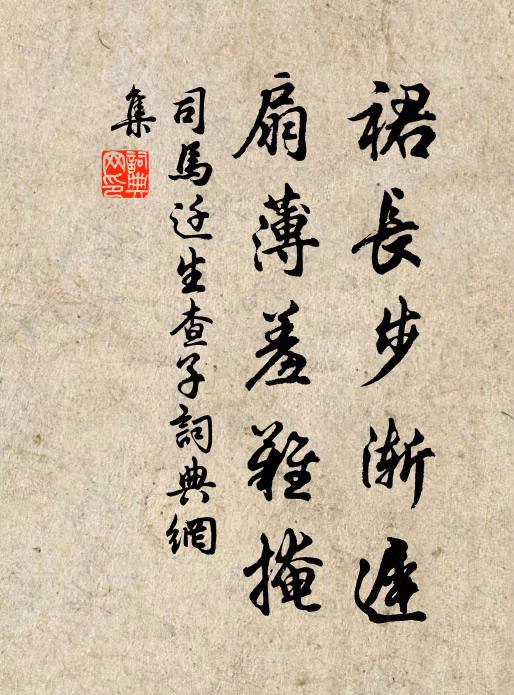 裙長步漸遲
扇薄羞難掩
司馬迁生查子詞典網
集
詞典
网印